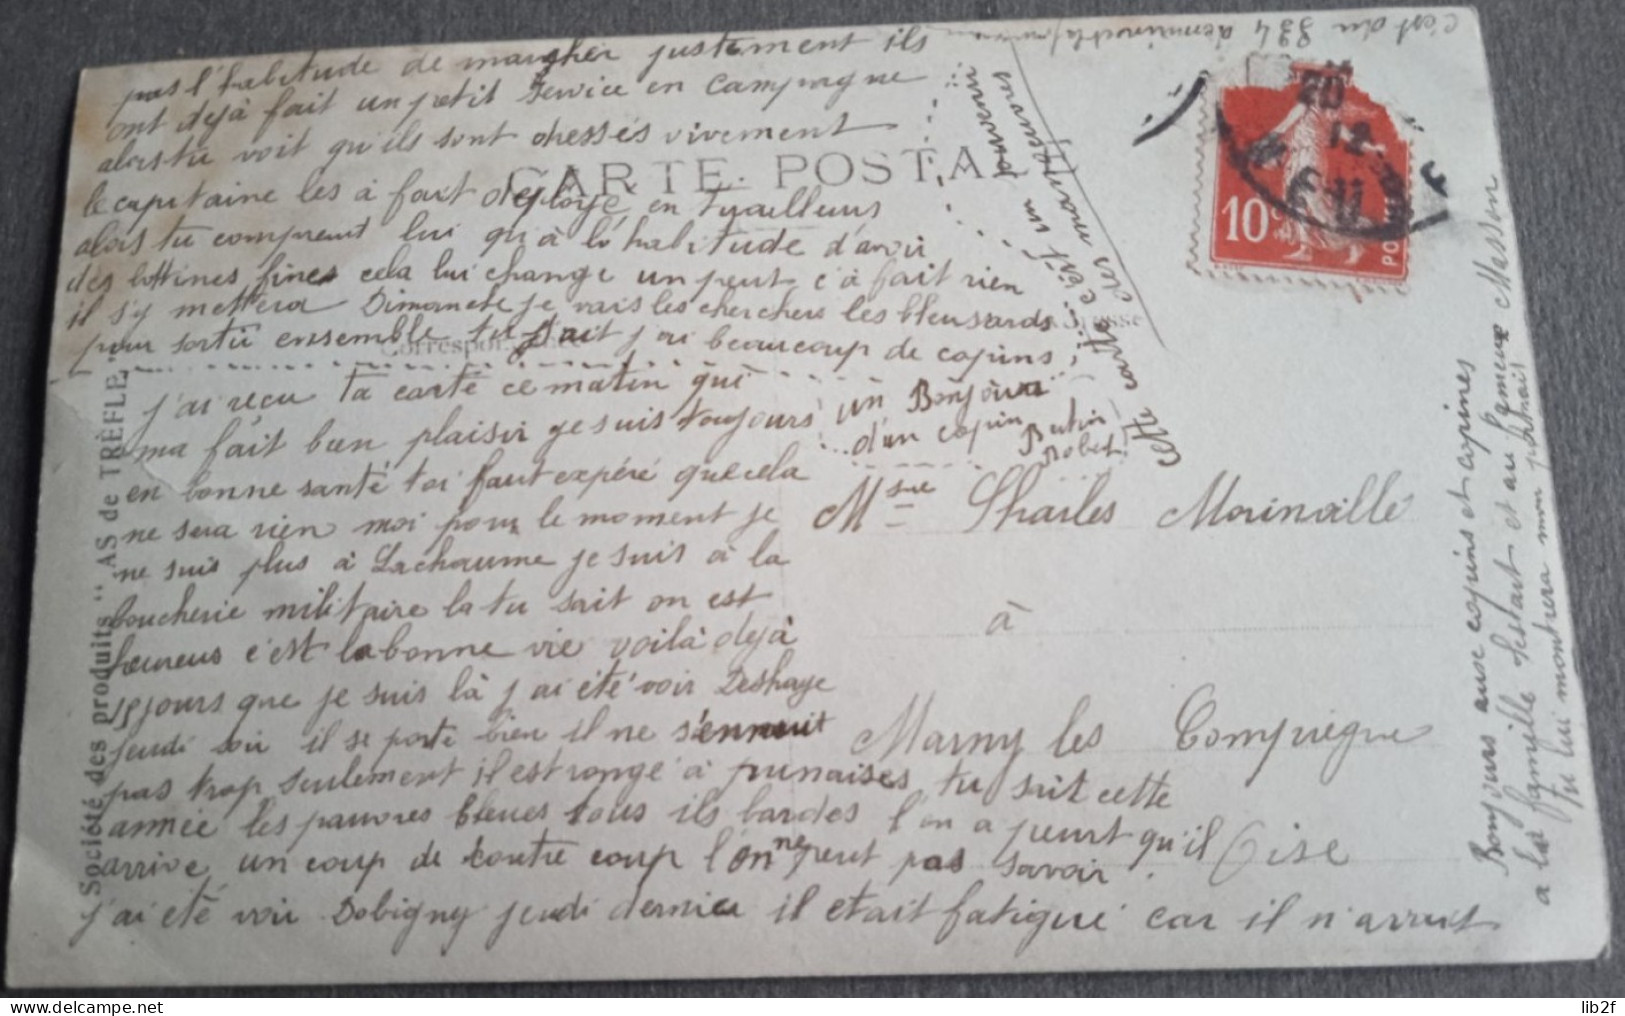 j'ai reçu ta carte ce matin qui
ma fait bien plaisir je suis toujours
en bonne santé toi faut expéré que cela
ne sera rien moi pour le moment je
ne suis plus à Lachaume je suis à la
boucherie militaire la tu sait on est
heureus c'est la bonne vie voilà dejà
jours que je suis là j'ai été voir Deshaye
jeudi soir il se porte bien il ne s'ennuit
pas trop seulement il est rongé à punaises tu sait cette
année les pauvres bleues tous ils bardes l'on a peurt qu'il
arrive un coup de contre coup l'on ne peut pas savoir.
j'ai été voir Dobigny jeudi dernier il etait fatigué car il n'avait
pas l'habitude de marcher justement ils
ont dejà fait un petit Service en Campagne
alors tu voit qu'ils sont dressés vivement
le capitaine les à fait deployé en tirailleurs
alors tu comprent lui qu'à l'habitude d'avoir
des bottines fines cela lui change un peut ç'à fait rien
il s'y mettera Dimanche je vais les chercher les bleusards
pour sortir ensemble tu sait j'ai beaucoup de copins
un Bonjour
d'un copin
Robert
cette carte c'est un souvenir
des manœuvres
CARTE POSTALE
Correspondance
Adresse
10c
Msieur Charles Morinville
à
Margny les Compiègne
Oise
Bonjours ause copins et copines
a la famille et au fameux Masson
tu lui montrera mon
c'est du
Société des produits "AS de TRÈFLE"
lib2f